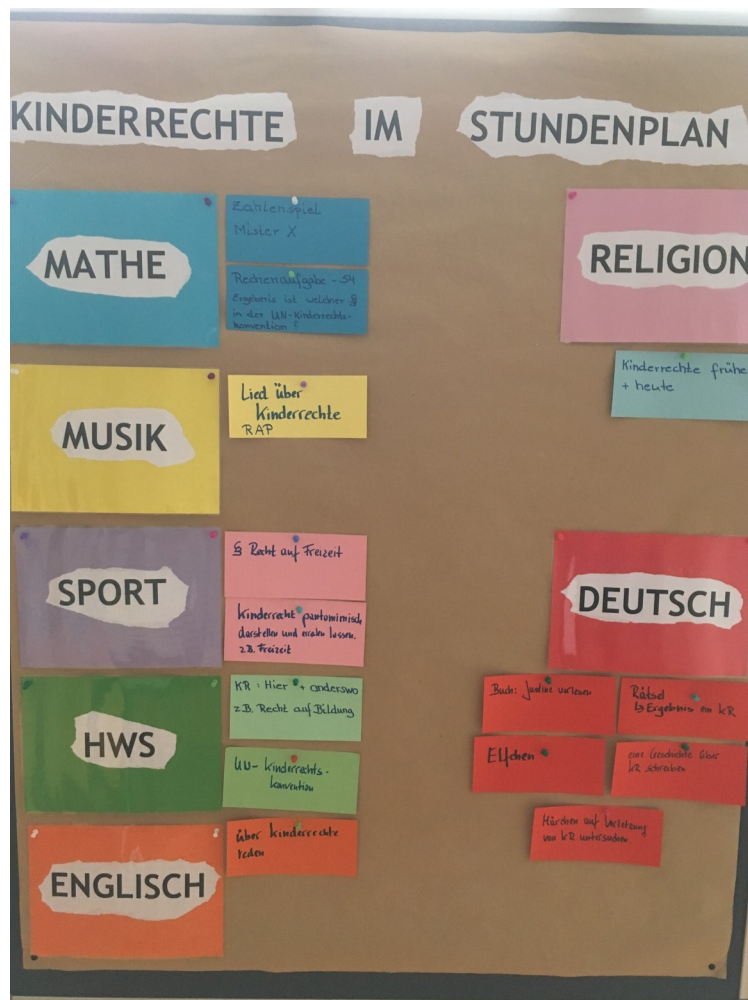 KINDERRECHTE IM STUNDENPLAN
MATHE
Zahlenspiel
Mister X
Rechenaufgabe - 54
Ergebnis ist welcher §
in der UN-Kinderrechts-
konvention?
MUSIK
Lied über
Kinderrechte
RAP
SPORT
§ Recht auf Freizeit
Kinderrecht pantomimisch
darstellen und erraten lassen.
z.B. Freizeit
HWS
KR: Hier + anderswo
z.B. Recht auf Bildung
UN-Kinderrechts-
konvention
ENGLISCH
über Kinderrechte
reden
RELIGION
Kinderrechte frühe
+ heute
DEUTSCH
Buch: Justine vorlesen
Rätsel
↳ Ergebnis ein KR
Elfchen
eine Geschichte über
KR schreiben
Märchen auf Verletzung
von KR untersuchen